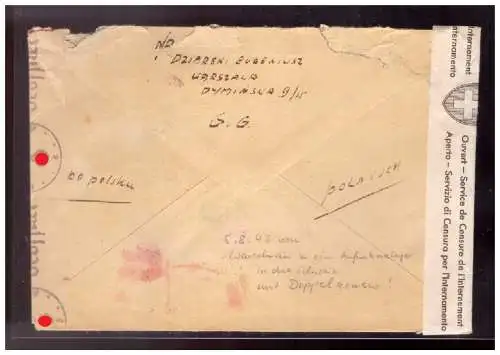 N/D
DZIĘRSKI EUGENIUSZ
WARSZAWA
DYMIŃSKA 9/15
G. G.
po polsku
polnisch
5.8.43 von
Warschau in ein
in der Schweiz
mit Doppelzensur!
Internement
Internamento
Ouvert – Service de Censure de l'Internement
Aperto – Servizio di Censura per l'Internamento